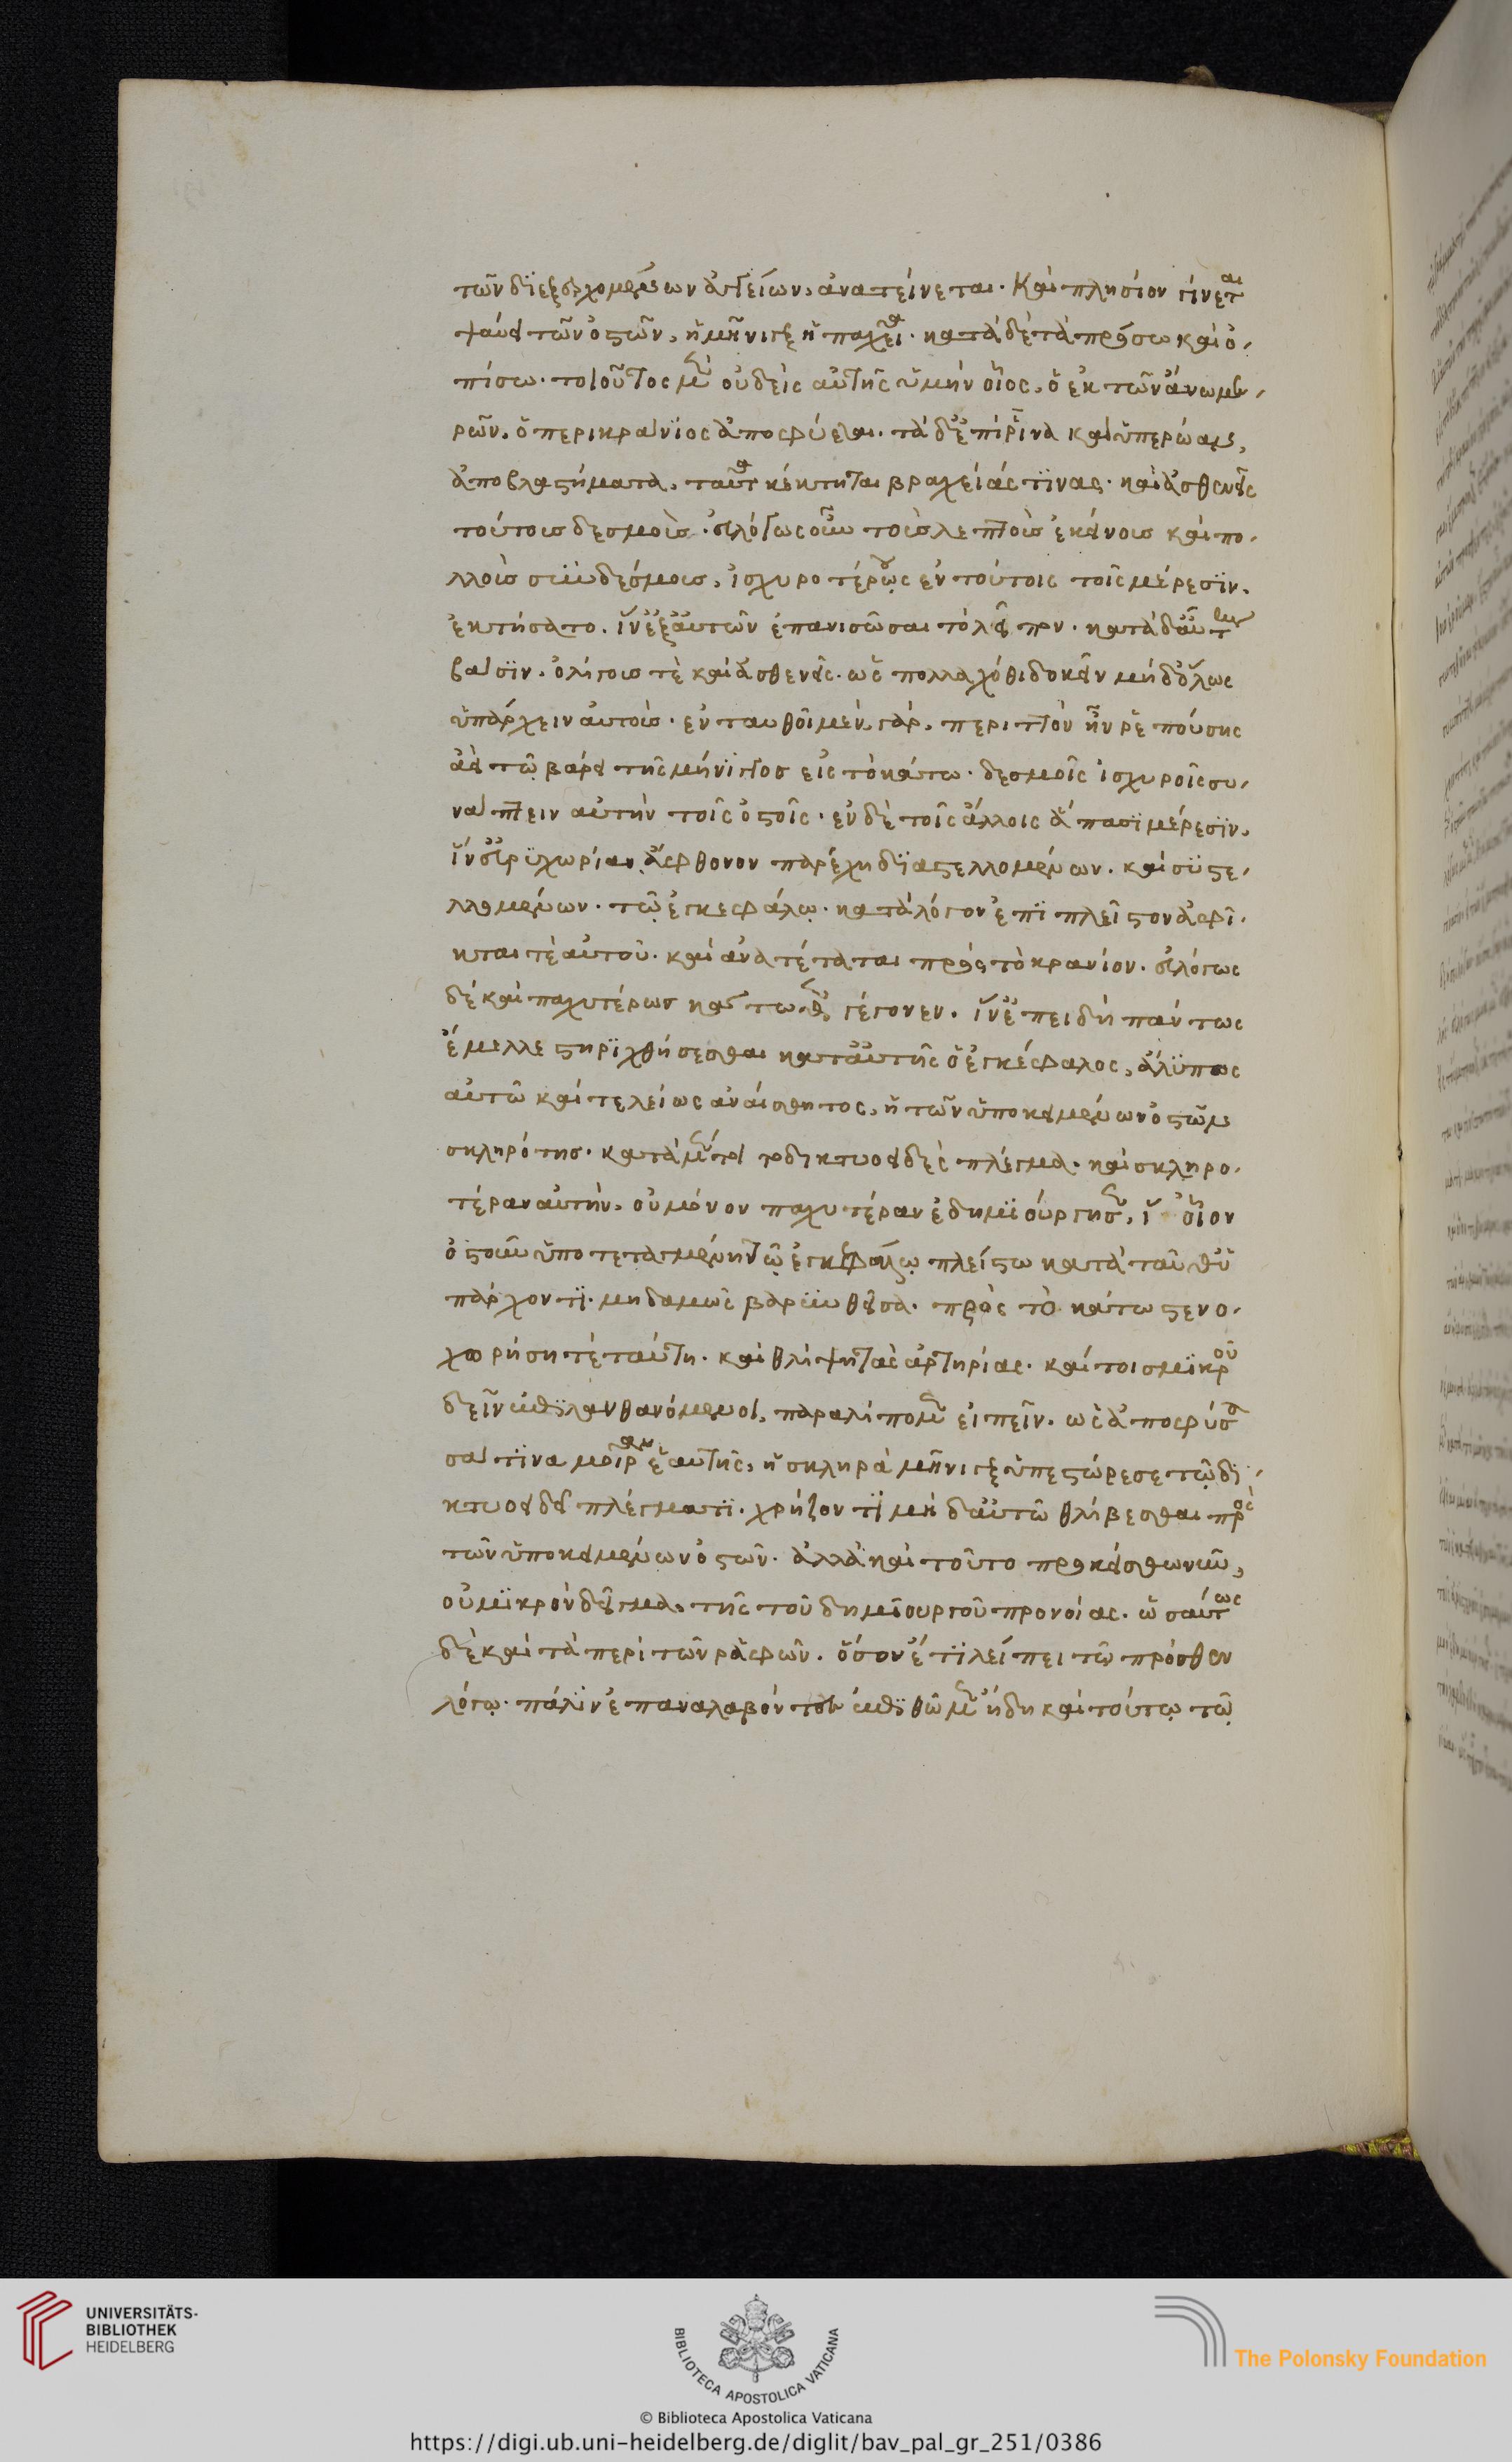 τῶν διεξερχομένων ἀγγείων, ἀνατείνεται. καὶ πλησίον γίνεται
ψαύει τῶν ὀστῶν, ἡ μῆνιγξ ἡ παχεῖα. κατὰ δὲ τὰ πρόσω καὶ ὀ-
πίσω. τοιοῦτος μὲν οὐδεὶς αὐτῆς ὑμὴν οἷος, ὁ ἐκ τῶν ἄνω με-
ρῶν, ὁ περικράνιος ἀποφύεται. τὰ δ' ἐπὶ ῥῖνα καὶ ὑπερώας,
ἀποβλαστήματα, ταῦτα κέκτηται βραχείας τινας. καὶ ἀσθενεῖς
τούτοις δεσμοῖς. εὐλόγως οὖν τοῖς λεπτοῖς ἐκείνοις καὶ πο-
λλοῖς συνδέσμοις, ἰσχυροτέροις ἐν τούτοις τοῖς μέρεσιν,
ἐκτήσατο. ἵν' ἐξ αὐτῶν ἐπανισῶσαι τὸ λεῖπον. κατὰ δ' αὖ τὴν
βάσιν. ὀλίγοις τὲ καὶ ἀσθενεῖς. ὡς πολλαχόθι δοκεῖν μηδόλως
ὑπάρχειν αὐτοῖς. ἐνταυθοῖ μὲν γὰρ, περιττὸν ἦν ῥεπούσης
ἀεὶ τῷ βάρει τῆς μήνιγγος εἰς τὸ κάτω. δεσμοῖς ἰσχυροῖς συ-
νάπτειν αὐτὴν τοῖς ὀστοῖς. ἐν δὲ τοῖς ἄλλοις ἅπασι μέρεσιν,
ἵν' εὐρυχωρίαν ἄφθονον παρέχῃ διαστελλομένων. καὶ συστε-
λλομένων. τῷ ἐγκεφάλῳ. κατὰ λόγον ἐπὶ πλεῖστον ἀφῖ-
κται τὲ αὐτοῦ. καὶ ἀνατέταται πρὸς τὸ κρανίον. εὐλόγως
δὲ καὶ παχυτέρως γέγονεν. ἵν' ἐπειδὴ πάντως
ἔμελλε στηριχθήσεσθαι κατ' αὐτῆς ὁ ἐγκέφαλος, ἄλυπος
αὐτῶ καὶ τελείως ἀναίσθητος, ἡ τῶν ὑποκειμένων ὀστῶν
σκληρότης. κατὰ μέντοι τὸ δικτυοειδὲς πλέγμα. καὶ σκληρο-
τέραν αὐτὴν, οὐ μόνον παχυτέραν ἐδημιούργησεν, ἵν' οἷον
ὀστοῦν ὑποτεταγμένη τῷ ἐγκεφάλῳ πλείστω κατὰ ταῦθ' ὑ-
πάρχοντι. μηδαμῶς βαρυνθεῖσα. πρὸς τὸ κάτω στενο-
χωρήσῃ τὲ ταύτῃ. καὶ θλίψῃ τὰς ἀρτηρίας. καίτοι σμικροῦ
δεῖν ἐπιλανθανόμενοι, παραλίπομεν εἰπεῖν. ὡς ἀποφύσα
σά τινα μοῖραν ἑαυτῆς, ἡ σκληρὰ μῆνιγξ ὑπεστόρεσε τῷ δι-
κτυοειδεῖ πλέγματι. χρήζοντι μηδ' αὐτῶ θλίβεσθαι πρὸς
τῶν ὑποκειμένων ὀστῶν. ἀλλὰ καὶ τοῦτο προκείσθω νῦν,
οὐ μικρὸν δεῖγμα, τῆς τοῦ δημιουργοῦ προνοίας. ὡσαύτως
δὲ καὶ τὰ περὶ τῶν ῥαφῶν. ὅσον ἔτι λείπει τῷ πρόσθεν
λόγῳ. πάλιν ἐπαναλαβόντες ἐπιθῶμεν ἤδη καὶ τούτῳ τῷ
UNIVERSITÄTS-
BIBLIOTHEK
HEIDELBERG
BIBLIOTECA APOSTOLICA VATICANA
The Polonsky Foundation
© Biblioteca Apostolica Vaticana
https://digi.ub.uni-heidelberg.de/diglit/bav_pal_gr_251/0386